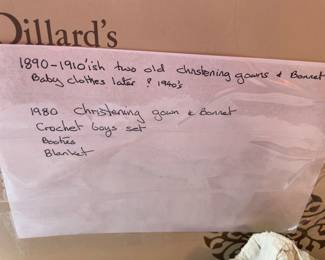 Dillard's
1890-1910'ish two old christening gowns & Bonnet
Baby clothes later ? 1940's
1980 christening gown & Bonnet
Crochet boys set
Booties
Blanket